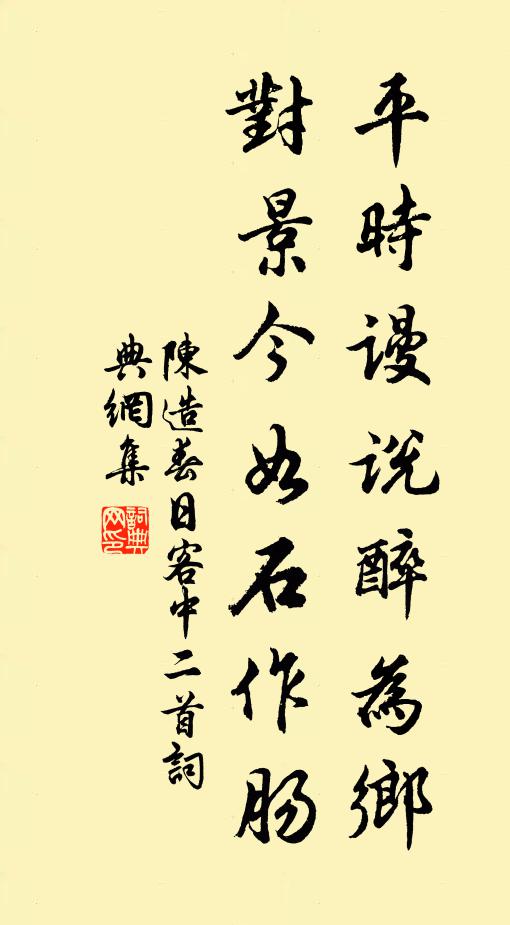 平時謾説醉為鄉
對景今如石作腸
陳造春日客中二首詞
典網集
詞典網印